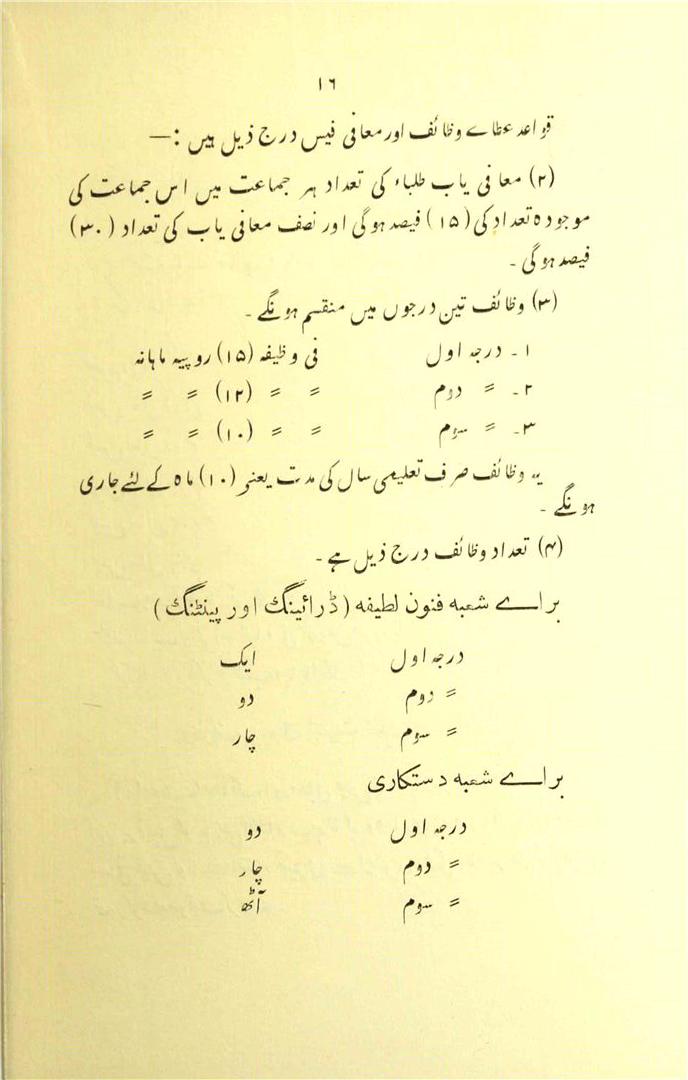 ۱۶
قواعد عطاے وظائف اور معافی فیس درج ذیل ہیں :—
(۲) معافی یاب طلباء کی تعداد ہر جماعت میں اس جماعت کی
موجودہ تعداد کی (۱۵) فیصد ہوگی اور نصف معافی یاب کی تعداد (۳۰)
فیصد ہوگی ۔
(۳) وظائف تین درجوں میں منقسم ہونگے ۔
۱ ۔ درجہ اول فی وظیفہ (۱۵) روپیہ ماہانہ
۲ ۔ ״ دوم ״ ״ (۱۲) ״ ״
۳ ۔ ״ سوم ״ ״ (۱۰) ״ ״
یہ وظائف صرف تعلیمی سال کی مدت یعنی (۱۰) ماہ کے لئے جاری
ہونگے ۔
(۴) تعداد وظائف درج ذیل ہے ۔
براے شعبہ فنون لطیفہ (ڈرائینگ اور پینٹنگ)
درجہ اول ایک
״ دوم دو
״ سوم چار
براے شعبہ دستکاری
درجہ اول دو
״ دوم چار
״ سوم آٹھ